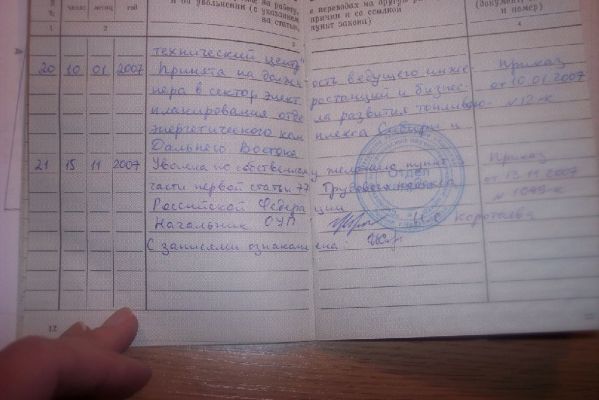 число месяц год
и об увольнении (с указанием
на статью,
о переводах на другую
причин и со ссылкой
пункт закона)
и номер)
1 2 3 4
технический центр"
20 10 01 2007 Принята на должность ведущего инже- Приказ
нера в сектор элект ростанций и бизнес- от 10.01.2007
планирования отде ла развития топливно- №12-к
энергетического ком плекса Сибири и
Дальнего Востока
21 15 11 2007 Уволена по собственному желанию, пункт Приказ
части первой статьи 77 Трудового кодекса от 13.11.2007
Российской Федера ции № 1049-к
Начальник ОУП Коротаева
С записями ознакомлена
Отдел
12